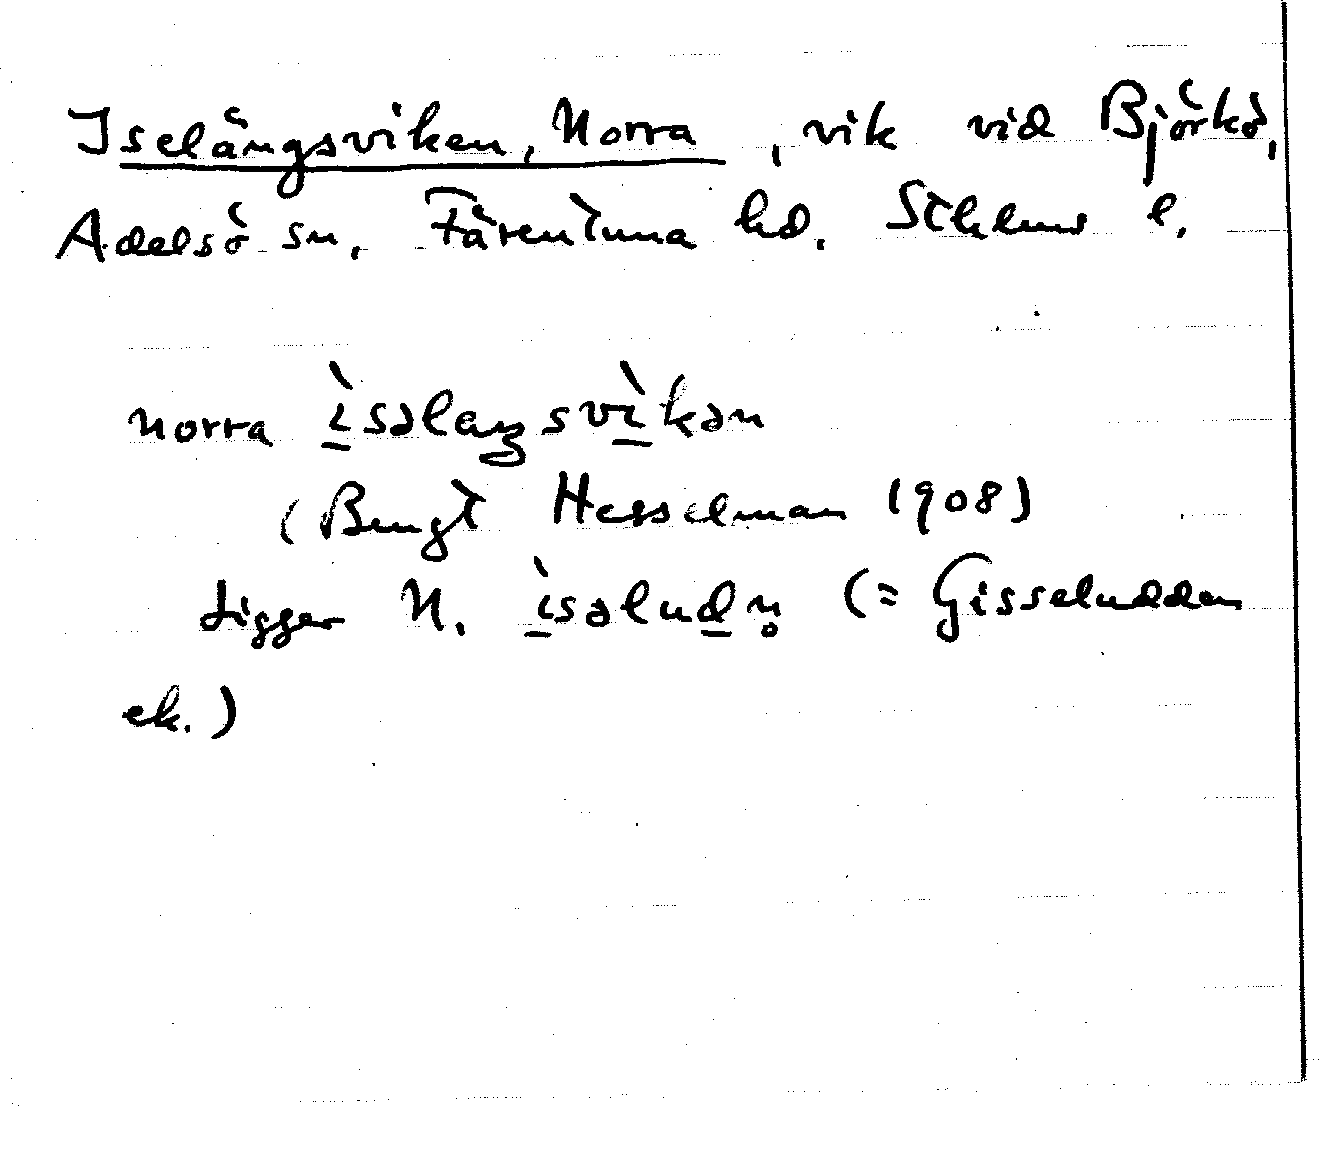 Iselängsviken, Norra, vik vid Björkö,
Adelsö sn. Färentuna hd. Sthlms l.
norra ı̱̀səlaŋsvı̱̀kən
(Bengt Hesselman 1908)
Ligger N. ı̱̀səlud̲n̥ (= Gisseludden
ek.)